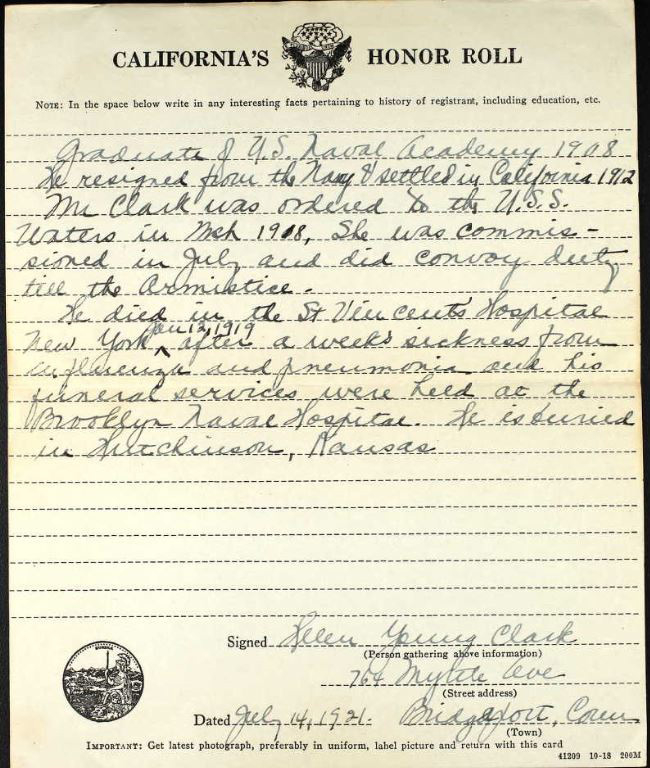 CALIFORNIA'S HONOR ROLL
NOTE: In the space below write in any interesting facts pertaining to history of registrant, including education, etc.
Graduate of U.S. Naval Academy 1908
He resigned from the Navy & settled in California 1912
Mr Clark was ordered to the U.S.S.
Waters in Mch 1918, She was commis-
sioned in July and did convoy duty
till the Armistice.
He died in the St Vincents Hospital
New York, Jan 12, 1919 after a weeks sickness from
influenza and pneumonia and his
funeral services were held at the
Brooklyn Naval Hospital. He is buried
in Hutchinson, Kansas
Signed Helen Young Clark
(Person gathering above information)
764 Myrtle Ave
(Street address)
Dated July 14, 1921. Bridgeport, Conn
(Town)
IMPORTANT: Get latest photograph, preferably in uniform, label picture and return with this card
41209 10-18 200M